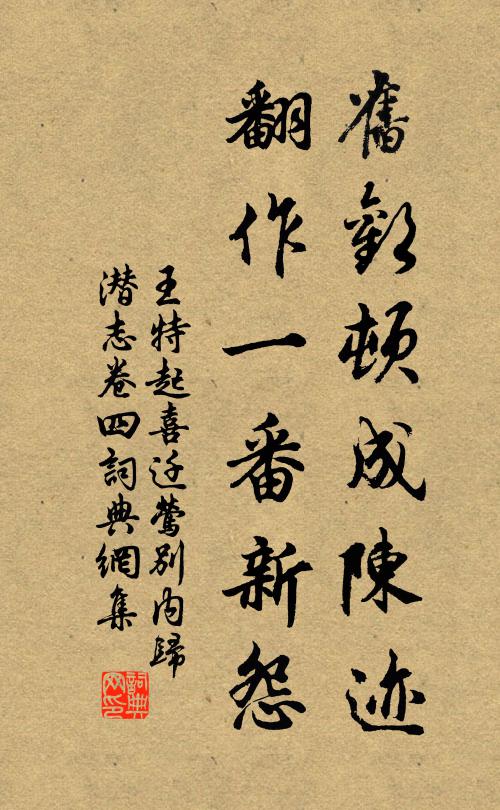 舊歡頓成陳迹
翻作一番新怨
王特起喜迁鶯别内歸
潜志卷四詞典網集
詞典网印